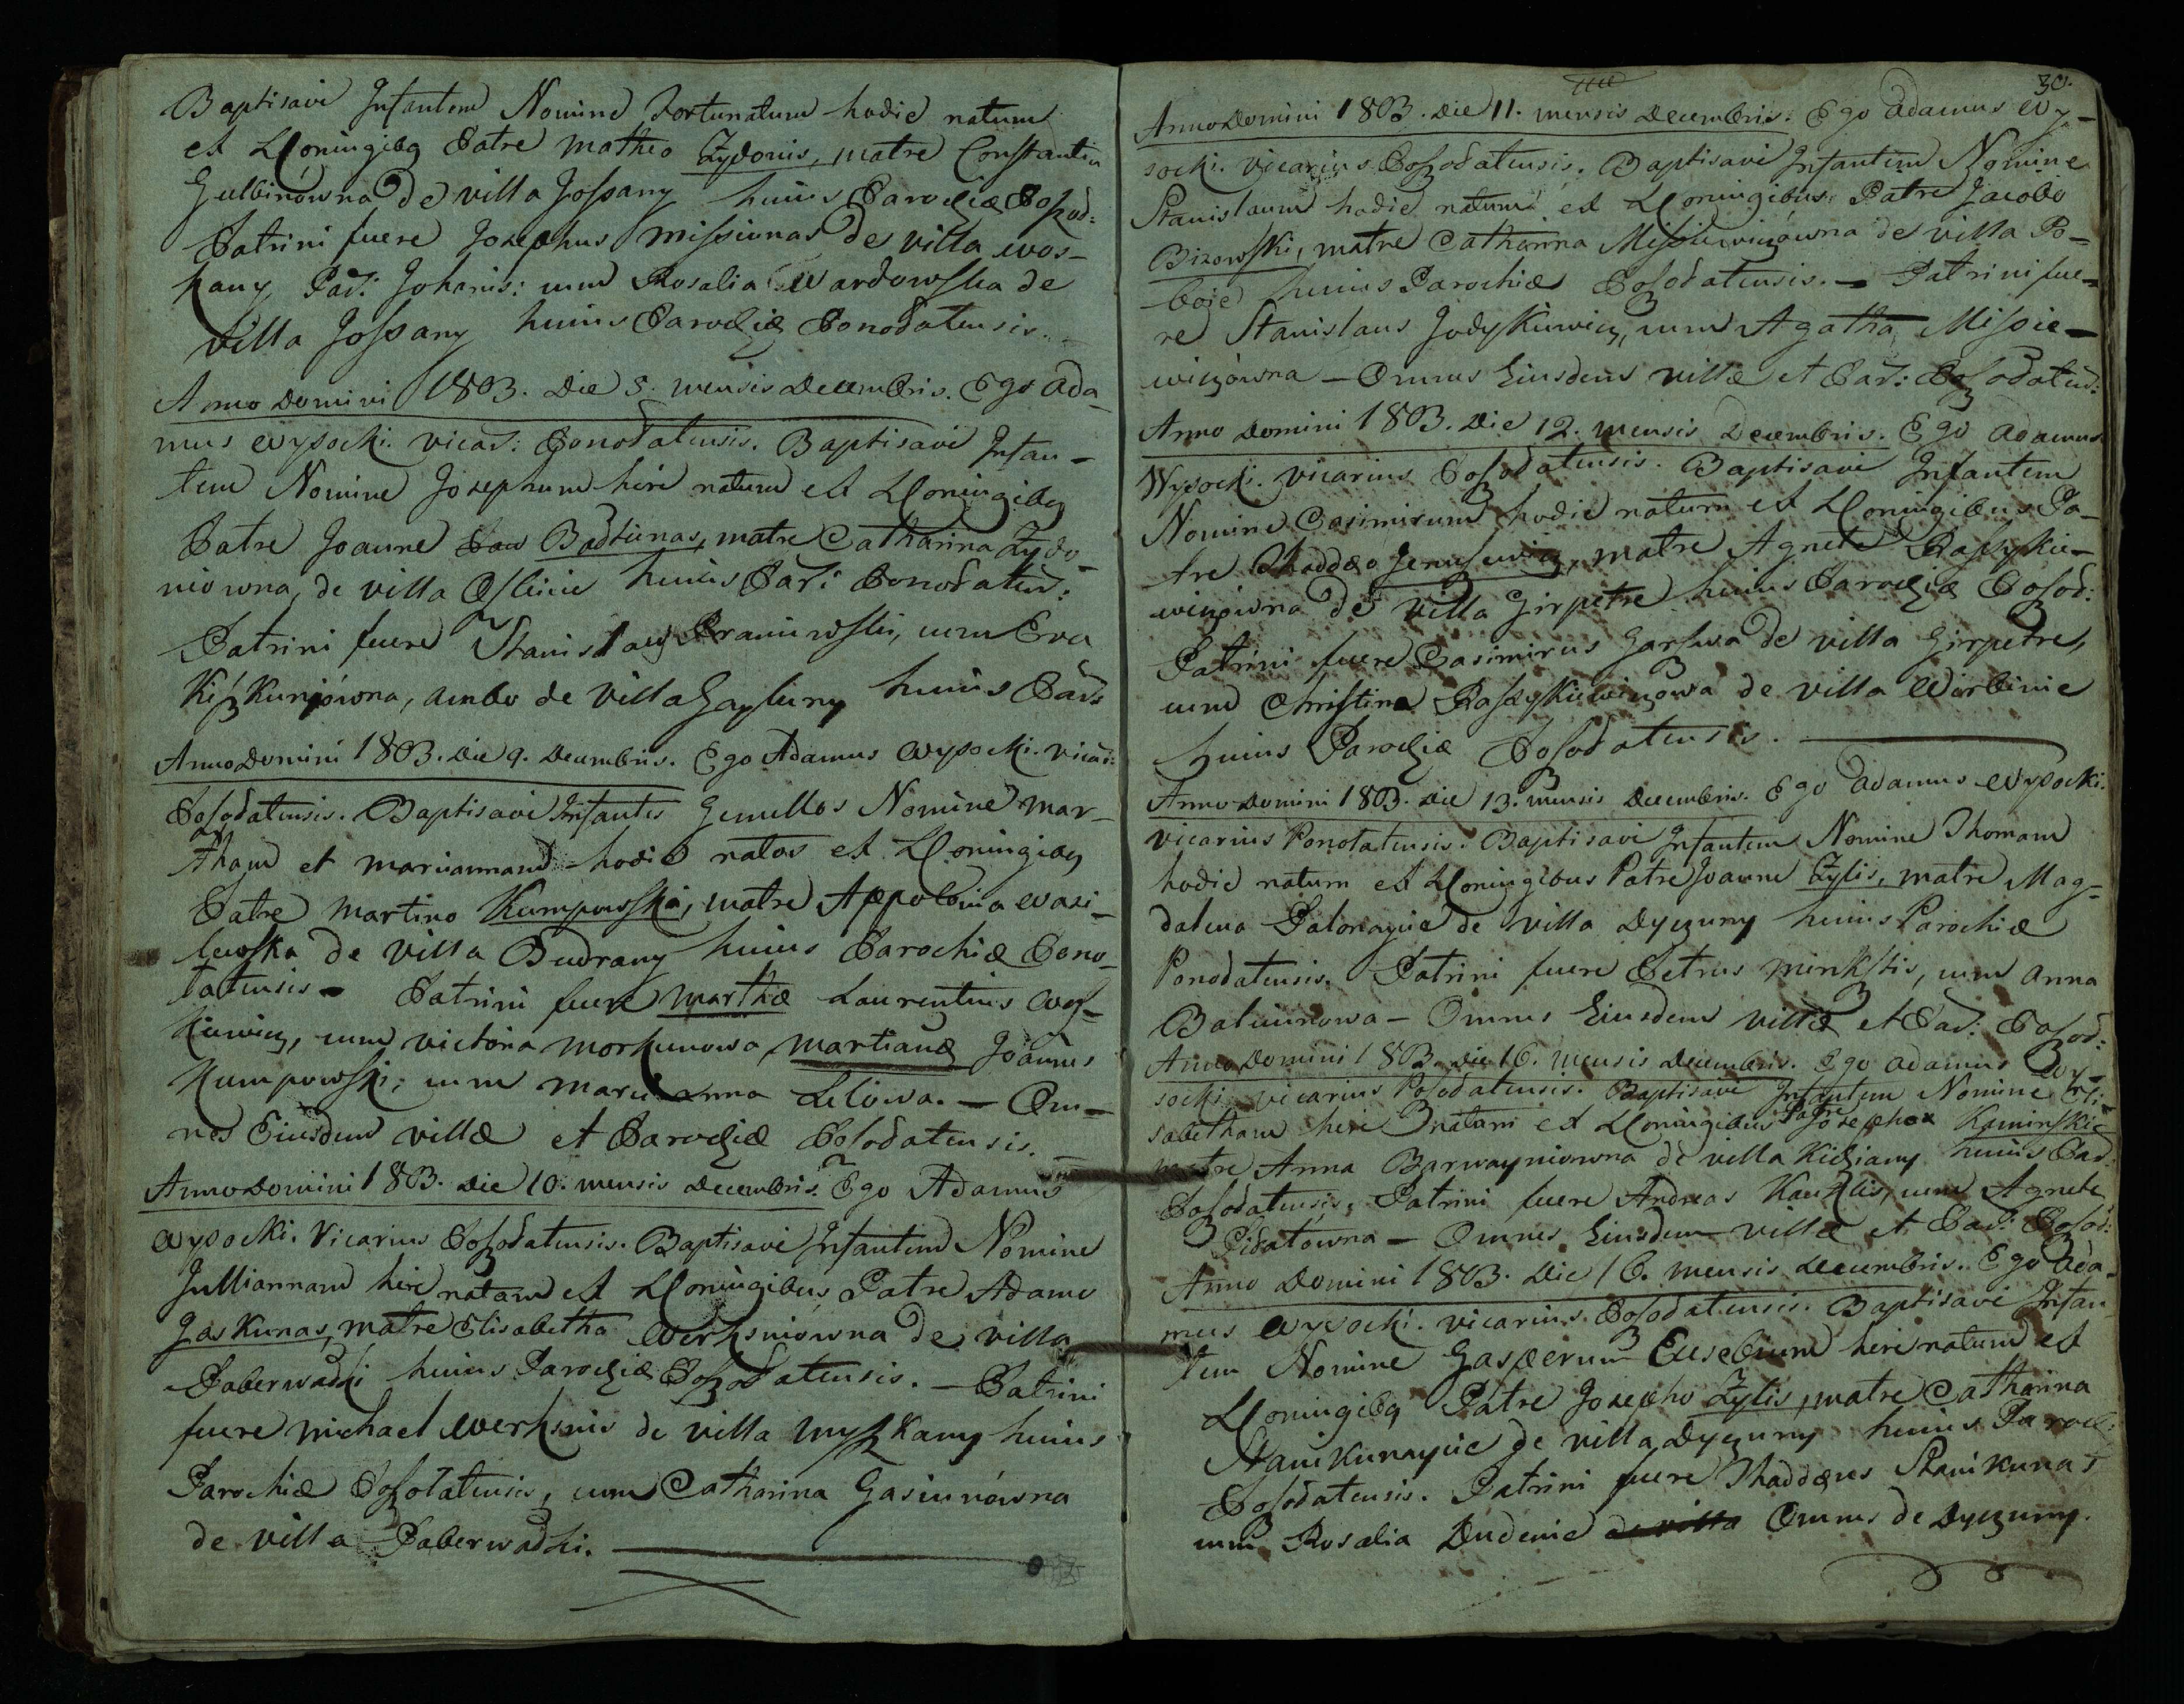 Baptisavi Infantem Nomine Fortunatum hodie natum
et LConiugibq Patre Matheo Zydonis, matre Constantia
Gulbinowna de villa Jossany huius Parochiæ Poszod:
Patrini fuere Josephus Missiunas de villa wos-
kany Par: Johanis: cum Rosalia Wardowska de
villa Jossany huius Parochiæ Ponodatensis.
Anno Domini 1803. Die 5. mensis Decembris. Ego Ada-
mus Wysocki. vicar: Ponodatensis. Baptisavi Infan-
tem Nomine Josephum heri natum et LConiugibq
Patre Joanne Badtiunas, matre Catharina Zydo-
niowna, de villa huius Par: Ponodaten:
Patrini fuere Stanislaus Praniewski, cum Eva
Kiszkuniówna, ambo de villa Gayluny huius Par:
Anno Domini 1803. Die 9. Decembris. Ego Adamus Wysocki. vicar:
Poszodatensis. Baptisavi Infantes Gemellos Nomine Mar-
tham et Mariannam hodie natos et LConiugibq
Patre Martino Kumpowski, matre Appolonia Wasi-
lewska de villa Budrany huius Parochiæ Pono-
tatensis - Patrini fuere Marthæ Laurentius Woy-
kiewicz, cum Victoria Morkunowa Martianæ Joannes
Kumpowski; cum Marianna Lelowa. - Om-
nes Eiusdem villæ et Parochiæ Poszodatensis.
Anno Domini 1803. Die 10. mensis Decembris. Ego Adamus
Wysocki. Vicarius Poszodatensis. Baptisavi Infantem Nomine
Julliannam heri natam et LConiugibus Patre Adamo
Gaskunas, matre Elisabetha Werksniowna de villa
Paberwadki huius Parochiæ Poszodatensis. - Patrini
fuere Michael Werksnis de villa Myszkany huius
Parochiæ Poszotatensis, cum Catharina Gasiunówna
de villa Paberwadki.
30.
Anno Domini 1803. Die 11. mensis Decembris. Ego Adamus Wy-
socki. vicarius Poszodatensis. Baptisavi Infantem Nomine
Stanislaum hodie natum et LConiugibus Patre Jacobo
Bizowski, matre Catharina Missiewiczówna de villa Po-
boie huius Parochiæ Poszodatensis. - Patrini fue-
re Stanislaus Jodyskiewicz, cum Agatha Missie-
wiczówna - Omnes Eiusdem villæ et Par: Poszodaten:
Anno Domini 1803. Die 12. mensis Decembris. Ego Adamus
Wysocki. vicarius Poszodatensis. Baptisavi Infantem
Nomine Casimirum hodie natum et LConiugibus Pa-
tre Thaddæo Jenusewicz, matre Agneta Raszykie-
wiczówna de villa Girpetre huius Parochiæ Poszod:
Patrini fuere Casimirus Garszwa de villa Girpetre,
cum Christina Raszykiewiczowa de villa Wirbinie
huius Parochiæ Poszodatensis.
Anno Domini 1803. Die 13. mensis Decembris. Ego Adamus Wysocki.
vicarius Ponotatensis. Baptisavi Infantem Nomine Thomam
hodie natum et LConiugibus Patre Joanne Zylis, matre Mag-
dalena Palonaycie de villa Dyczuny huius Parochiæ
Ponodatensis. Patrini fuere Petrus Minkstis, cum Anna
Balciunowa - Omnes Eiusdem villæ et Par: Poszod:
Anno Domini 1803. Die 16. mensis Decembris. Ego Adamus Wy-
socki vicarius Poszodatensis. Baptisavi Infantem Nomine Eli-
sabetham heri natam et LConiugibus Patre Josepho Kaminskie
matre Anna Barwayniowna de villa Kidziany huius Par:
Poszodatensis. Patrini fuere Andreas Kauklis, cum Agneta
Pidatówna - Omnes Eiusdem villæ et Par: Poszod:
Anno Domini 1803. Die 16. mensis Decembris. Ego Ada-
mus Wysocki. vicarius Poszodatensis. Baptisavi Infan-
tem Nomine Gasperum Eusebium heri natum et
LConiugibq Patre Josepho Zylis, matre Catharina
Stanikunaycie de villa Dyczuny huius Paroch:
Poszodatensis. Patrini fuere Thaddæus Stanikunas
cum Rosalia Dudenie de villa Omnes de Dyczuny.